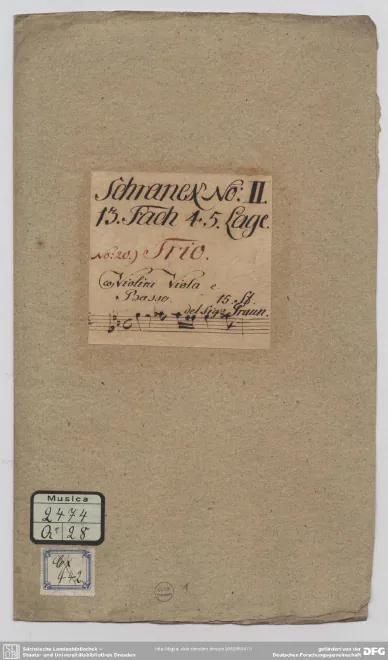 Schranck No: II.
13. Fach 4.5. Lage.
No: 20.) Trio.
co Violini Viola e
Basso. 15. St.
del Sigr Graun.
Musica
2474
28
Cx
442
Sächsische Landesbibliothek –
Staats- und Universitätsbibliothek Dresden
gefördert von der
Deutschen Forschungsgemeinschaft
DFG